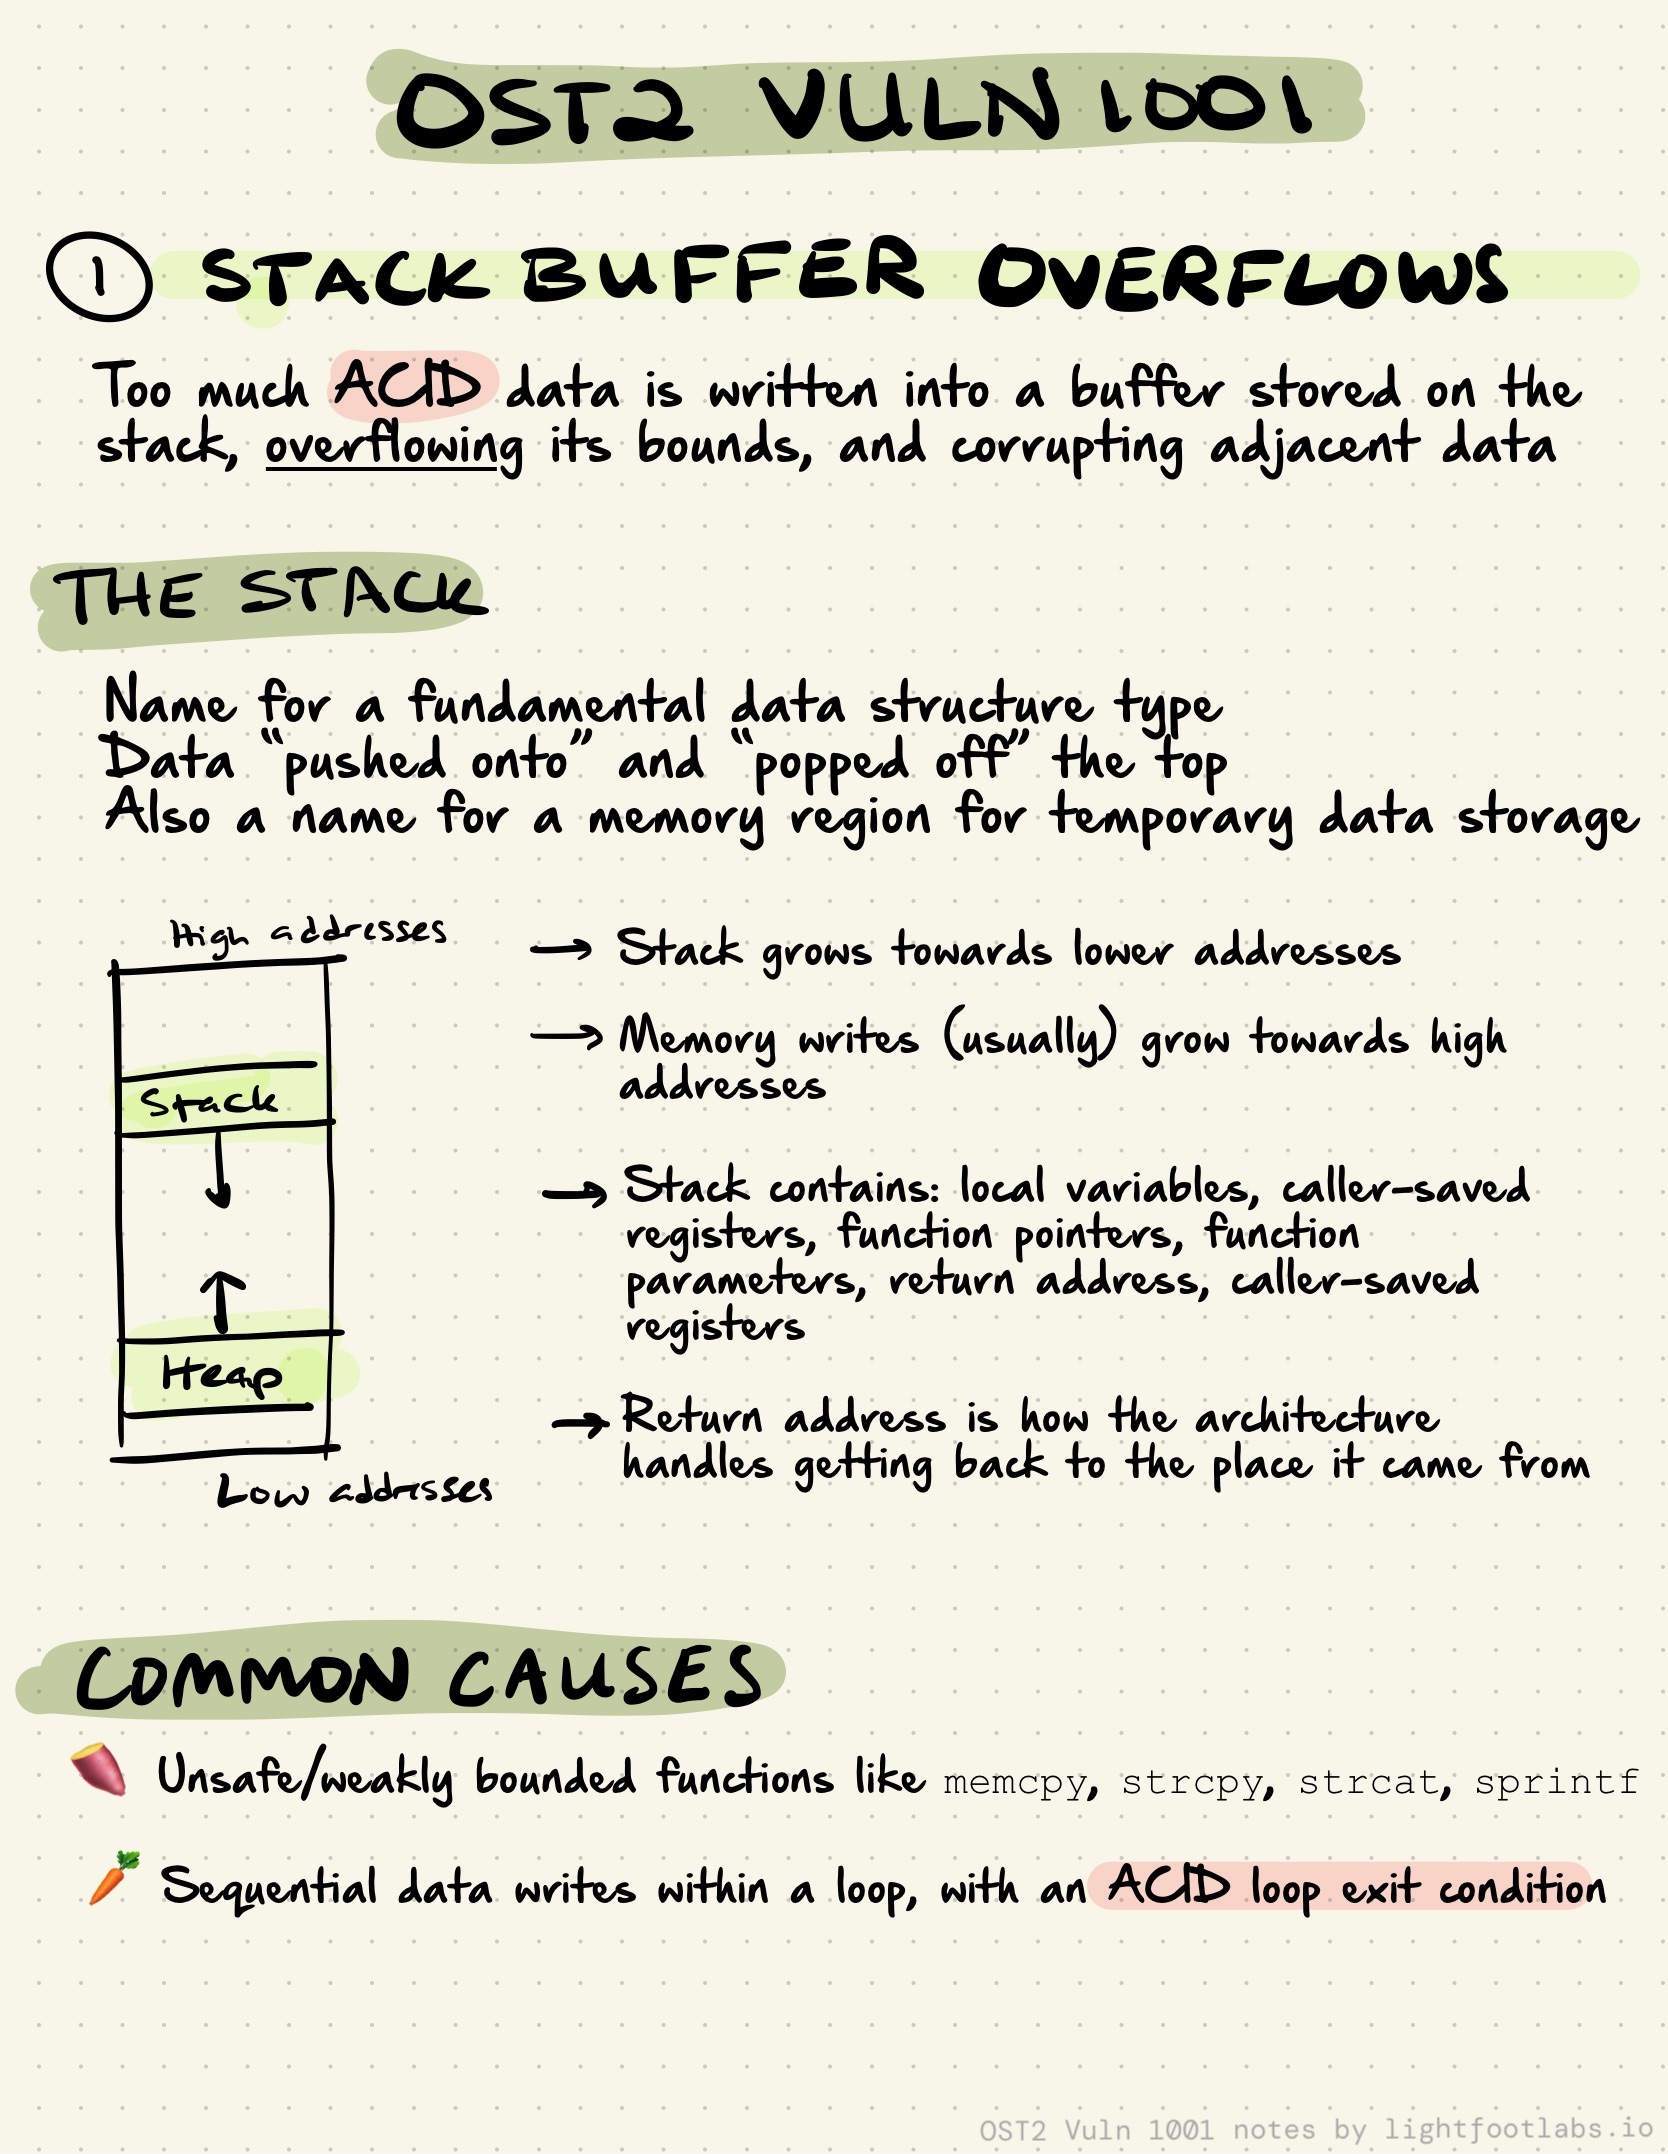 OST2 VULN 1001
1 STACK BUFFER OVERFLOWS
Too much ACID data is written into a buffer stored on the
stack, overflowing its bounds, and corrupting adjacent data
THE STACK
Name for a fundamental data structure type
Data “pushed onto” and “popped off” the top
Also a name for a memory region for temporary data storage
High addresses
Stack
Heap
Low addresses
→ Stack grows towards lower addresses
→ Memory writes (usually) grow towards high
addresses
→ Stack contains: local variables, caller-saved
registers, function pointers, function
parameters, return address, caller-saved
registers
→ Return address is how the architecture
handles getting back to the place it came from
COMMON CAUSES
🍠 Unsafe/weakly bounded functions like memcpy, strcpy, strcat, sprintf
🥕 Sequential data writes within a loop, with an ACID loop exit condition
OST2 Vuln 1001 notes by lightfootlabs.io